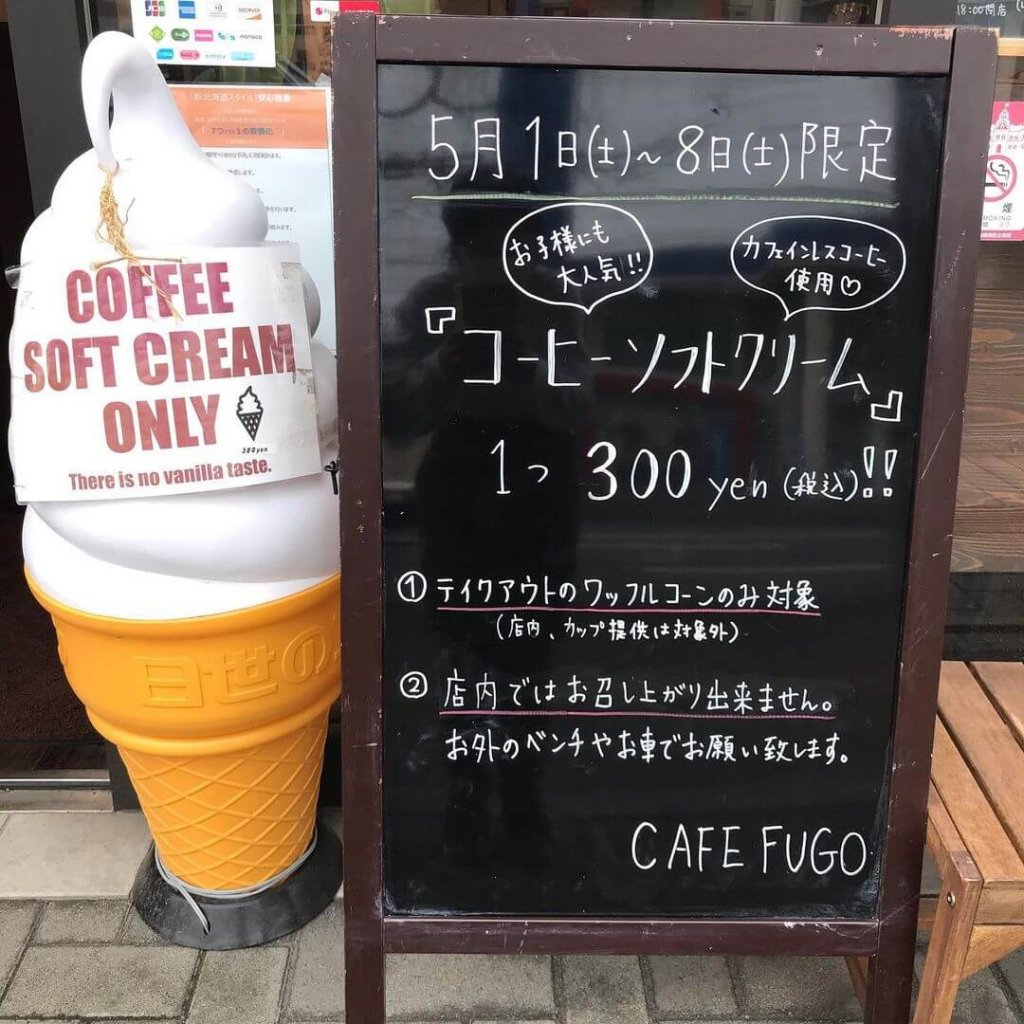 DISCOVER
18:00閉店
新北海道スタイル 安心宣言
COFFEE
SOFT CREAM
ONLY
380yen
There is no vanilla taste.
日世の
5月1日(土)~8日(土)限定
お子様にも
大人気!!
カフェインレスコーヒー
使用♡
『コーヒーソフトクリーム』
1つ 300 yen (税込)!!
① テイクアウトのワッフルコーンのみ対象
(店内、カップ提供は対象外)
② 店内ではお召し上がり出来ません。
お外のベンチやお車でお願い致します。
CAFE FUGO